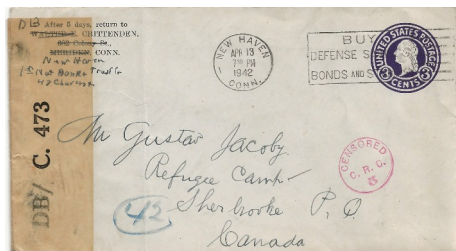 DB After 5 days, return to
WALTER E. CRITTENDEN,
MERIDEN, CONN.
New Haven
1st Nat Bank & Trust Co
42 Church St
DB/ C. 473
NEW HAVEN
1
APR 13
7 30 PM
1942
CONN.
BUY
DEFENSE S
BONDS AND S
UNITED STATES POSTAGE
3 CENTS 3
Mr Gustav Jacoby
Refugee Camp
Sherbrooke P. Q.
Canada
42
CENSORED
C. R. C.